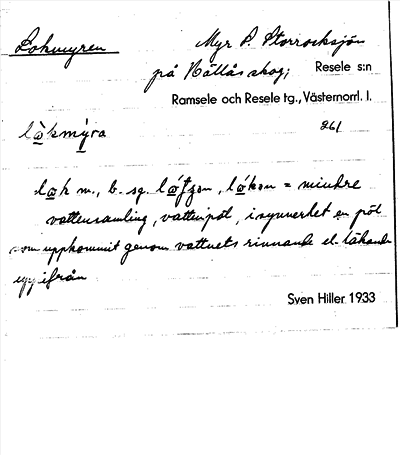 Lokmyren
Myr P. Storrocksjön
på Nällåsskog; Resele s:n
Ramsele och Resele tg., Västernorrl. l.
lo̲kmy̲ra 261
lo̲k m., b. sg. lo̲ḱen = mindre
vattensamling, vattenpöl, i synnerhet en pöl
som uppkommit genom vattnets rinnande el. läkande
upp ifrån
Sven Hiller 1933